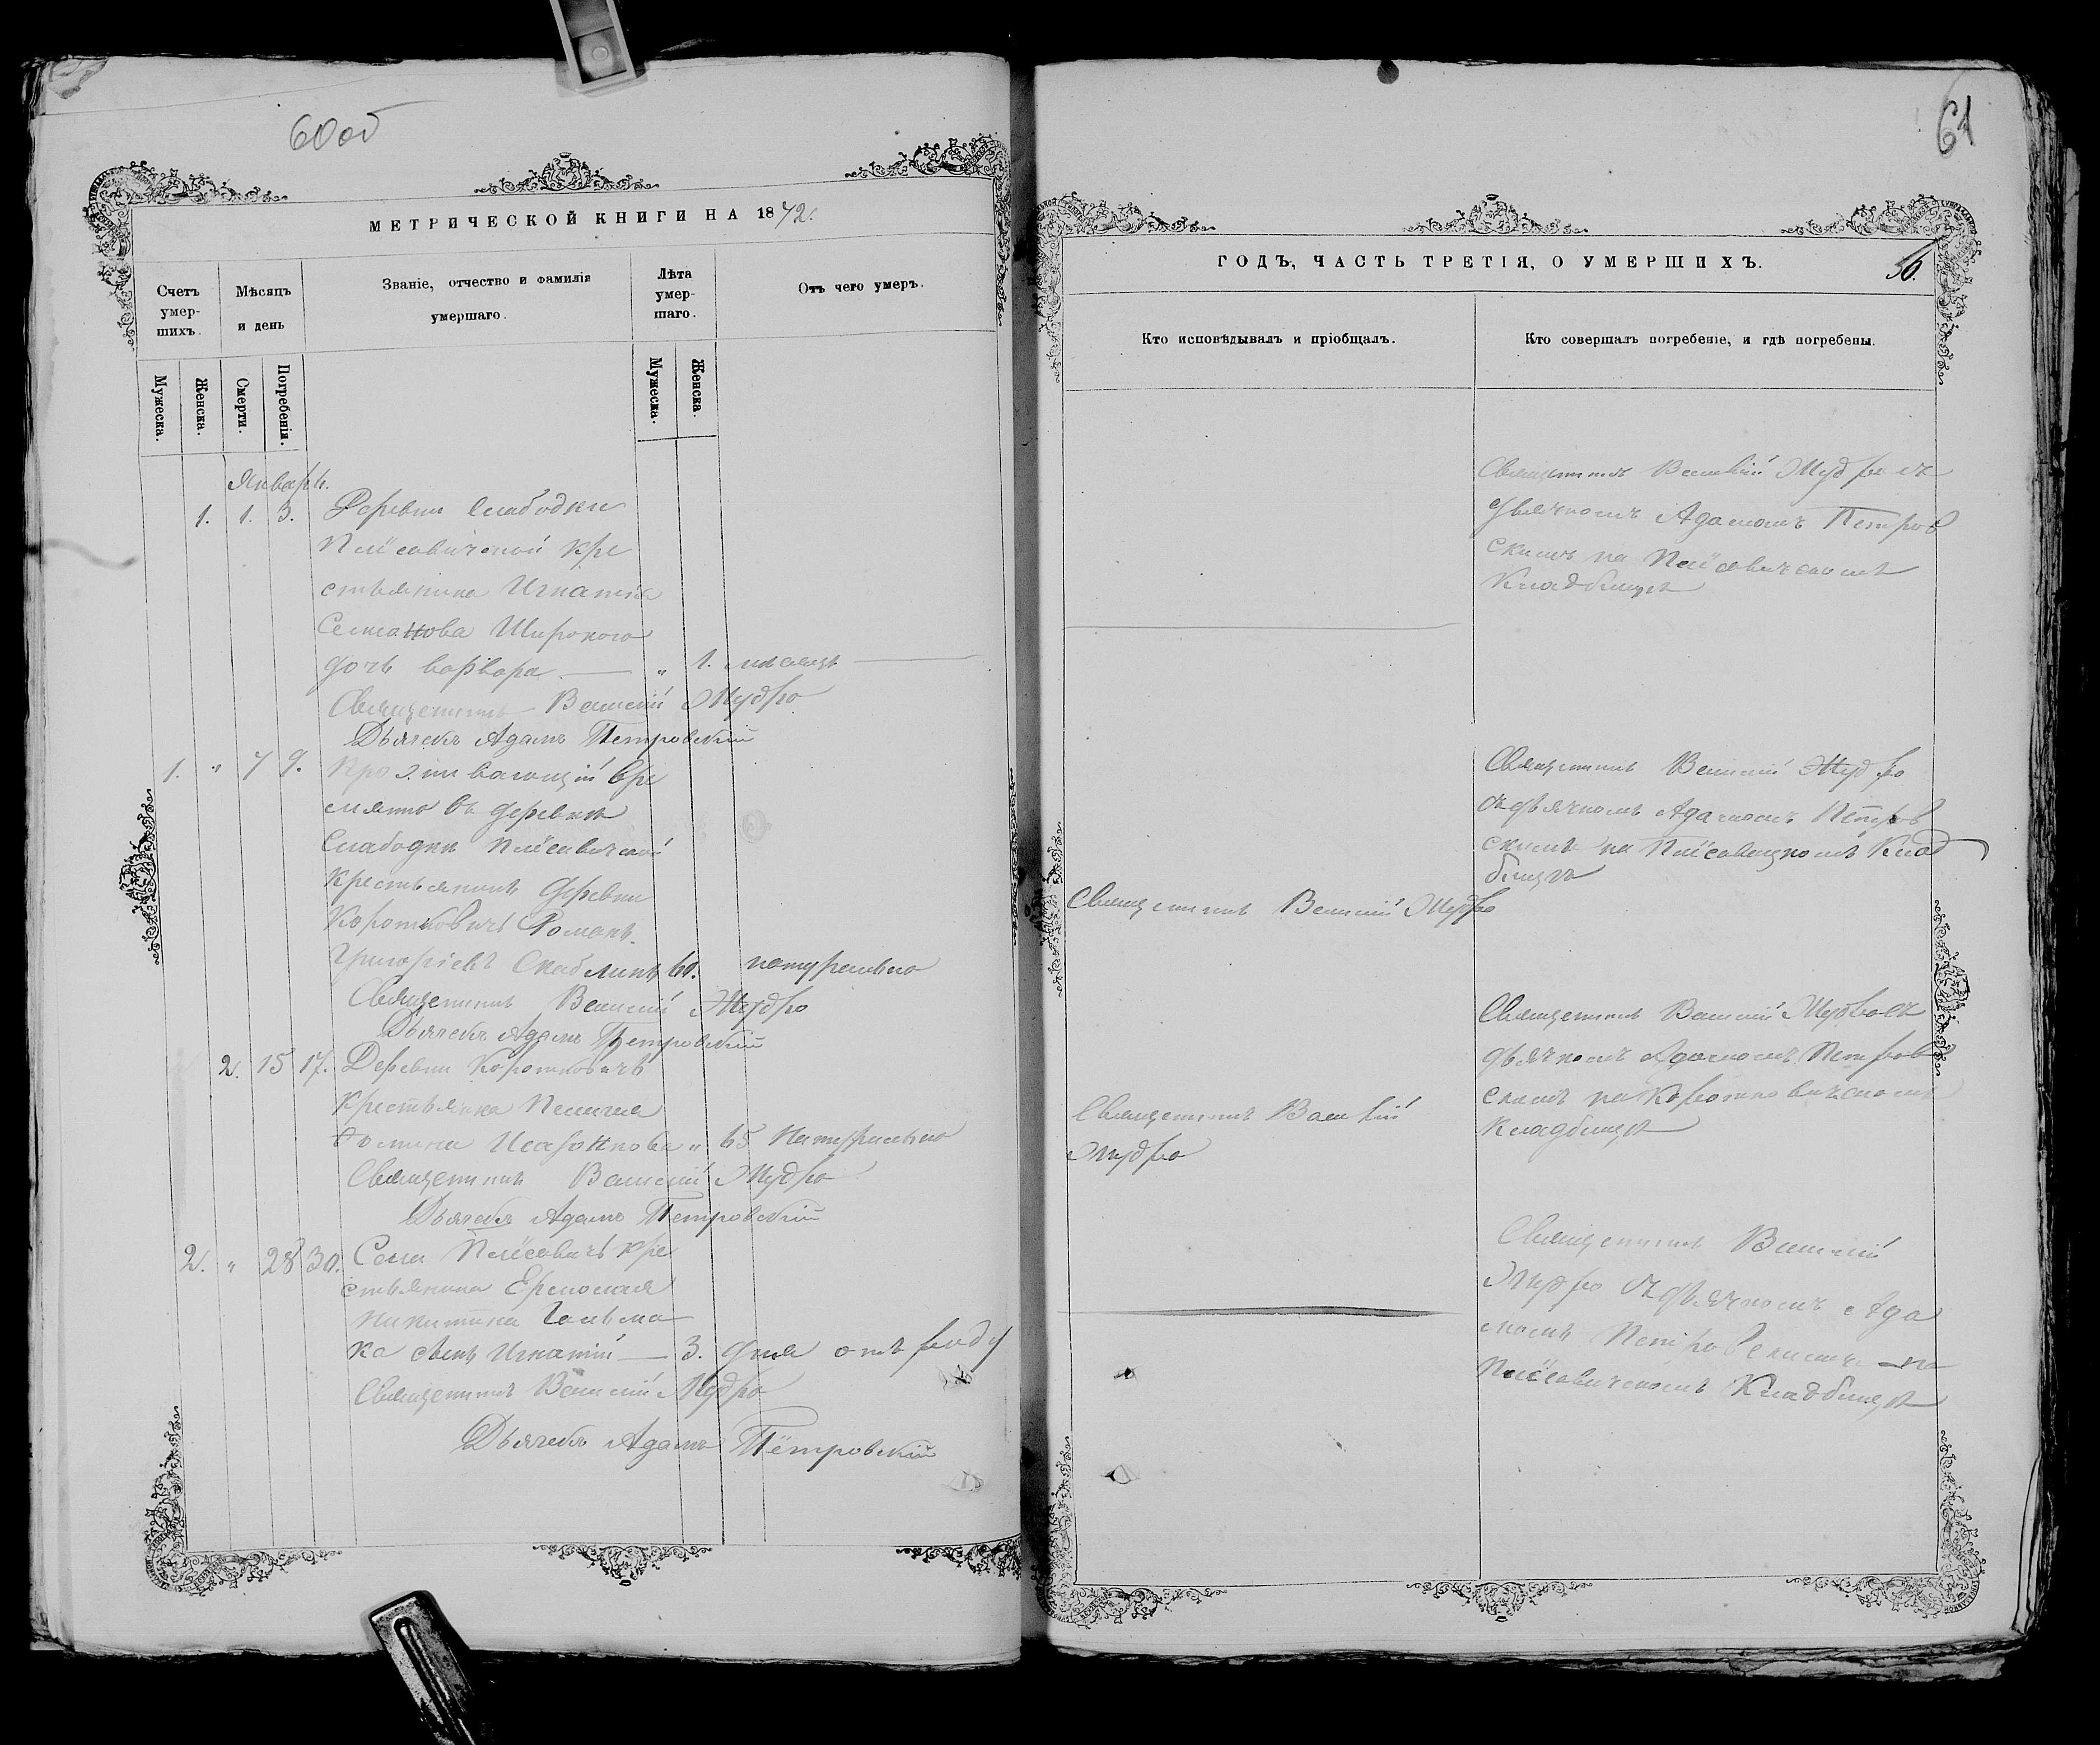 60об
МЕТРИЧЕСКОЙ КНИГИ НА 1872.
Счетъ умер-шихъ.
Мѣсяцъ и день
Званіе, отчество и фамилія умершаго.
Лѣта умер-шаго.
Отъ чего умеръ.
Мужеска.
Женска.
Смерти.
Погребенія.
Мужеска.
Женска.
Январь.
1. 1. 3. Деревни Слабодки
кре
стьянина Игнатія
Семонова Широкого
дочь варвара — " 1. мѣсяцъ —
Священникъ Василій Мудро
Дьячекъ Адамъ Петровскій
1. " 7 9. Проживающій вре
мянно въ деревнѣ
Слабодки
крестьянинъ деревни
Коротковичъ Романъ
Григоріевъ 60. натурально
Священникъ Василій Мудро
Дьячекъ Адамъ Петровскій
2. 15 17. Деревни Коротковичъ
крестьянка
Фомина " 65 Натурально
Священникъ Василій Мудро
Дьячекъ Адамъ Петровскій
2. " 28 30. Села кре
стьянина Ермолая
Никитина
ка сынъ Игнатій — 3. дня отъ роду
Священникъ Василій Мудро
Дьячекъ Адамъ Петровскій
61
ГОДЪ, ЧАСТЬ ТРЕТІЯ, О УМЕРШИХЪ.
56.
Кто исповѣдывалъ и пріобщалъ.
Кто совершалъ погребеніе, и гдѣ погребены.
Священникъ Василій Мудро съ
дьячкомъ Адамомъ Петров
скимъ на
Кладбищѣ
Священникъ Василій Мудро
съ дьячкомъ Адамомъ Петров
скимъ на Клад
бищѣ
Священникъ Василій Мудро
Священникъ Василій Мудро съ
дьячкомъ Адамомъ Петров
скимъ на Коротковичскомъ
Кладбищѣ
Священникъ Василій
Мудро
Священникъ Василій
Мудро съ дьячкомъ Ада
момъ Петровскимъ на
Кладбищѣ